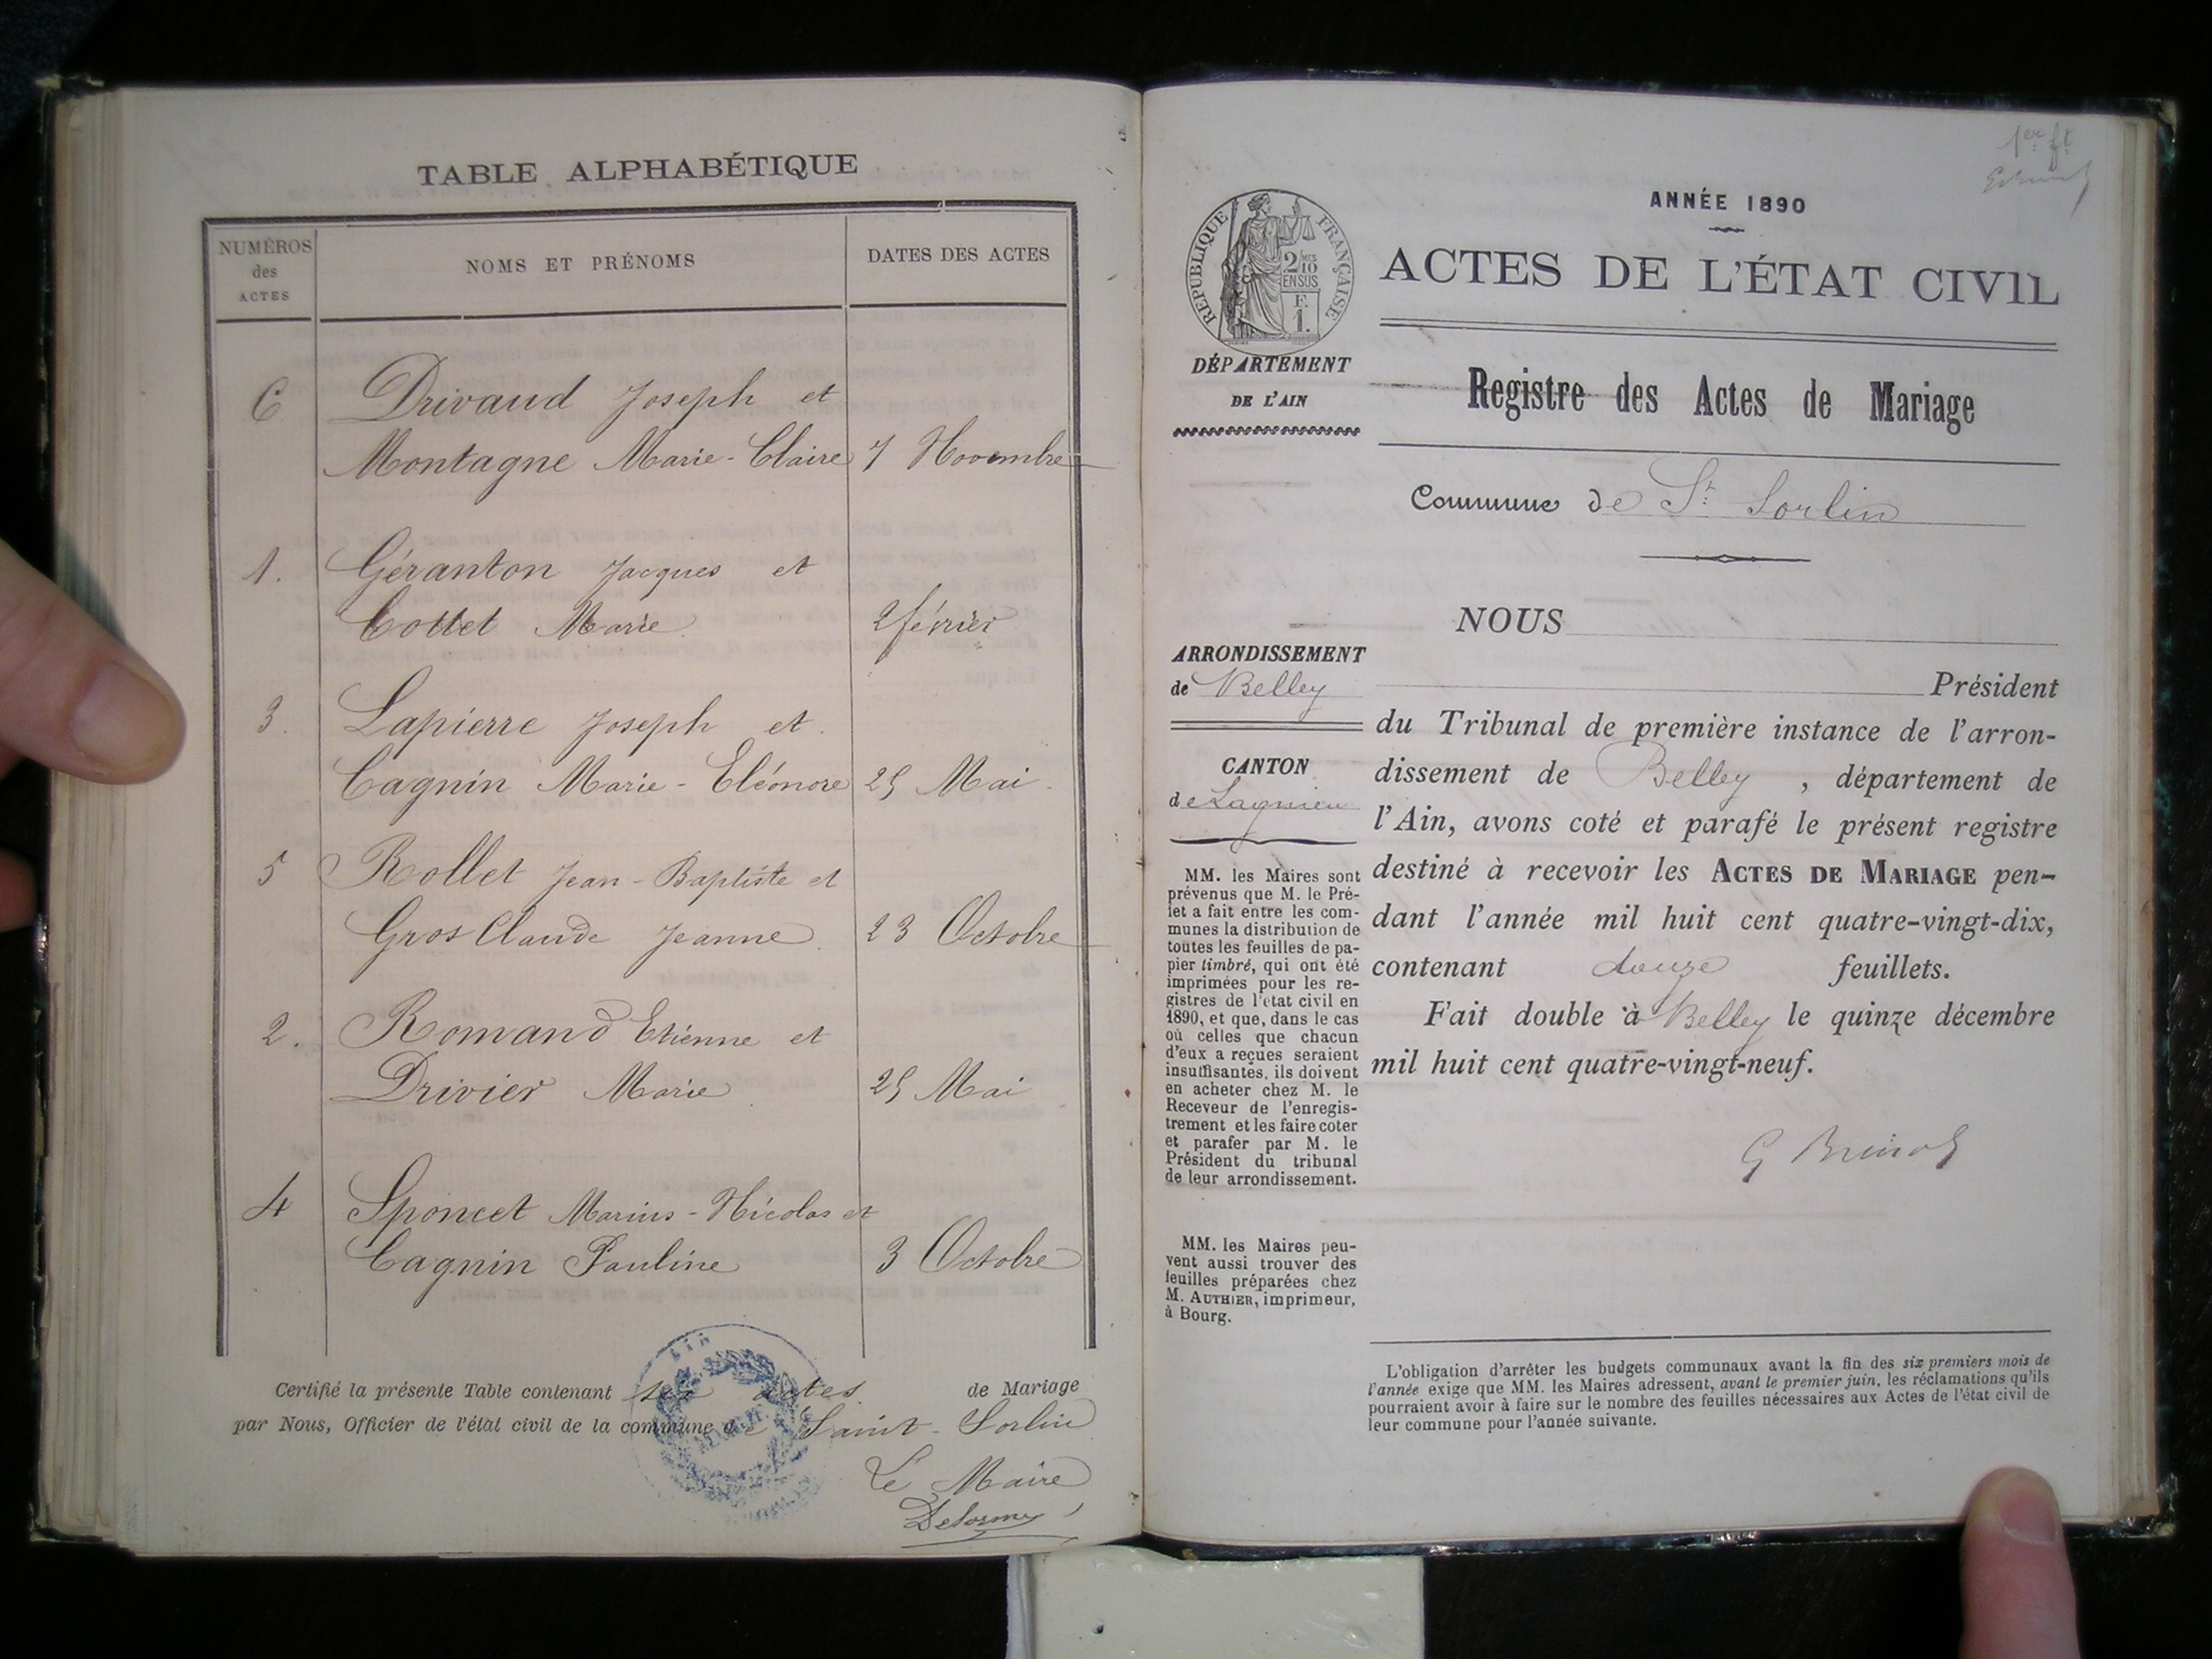 TABLE ALPHABÉTIQUE
NUMÉROS
des
ACTES
NOMS ET PRÉNOMS
DATES DES ACTES
6
Drivaud Joseph et
Montagne Marie-Claire
7 Novembre
1.
Géranton Jacques et
Cottet Marie
2 février
3.
Lapierre Joseph et
Cagnin Marie-Eléonore
25 Mai
5
Rollet Jean-Baptiste et
Gros Claude Jeanne
23 Octobre
2.
Romand Etienne et
Drivier Marie
25 Mai
4
Sponcet Marius-Nicolas et
Cagnin Pauline
3 Octobre
Certifié la présente Table contenant six actes de Mariage
par Nous, Officier de l'état civil de la commune de Saint-Sorlin
Le Maire
Delorme
1er ft
ANNÉE 1890
RÉPUBLIQUE FRANÇAISE
2/10MES
EN SUS
F.
1.
ACTES DE L'ÉTAT CIVIL
DÉPARTEMENT
DE L'AIN
Registre des Actes de Mariage
Commune de St Sorlin
NOUS
ARRONDISSEMENT
de Belley
CANTON
de Lagnieu
MM. les Maires sont
prévenus que M. le Pré-
fet a fait entre les com-
munes la distribution de
toutes les feuilles de pa-
pier timbré, qui ont été
imprimées pour les re-
gistres de l'état civil en
1890, et que, dans le cas
où celles que chacun
d'eux a reçues seraient
insuffisantes, ils doivent
en acheter chez M. le
Receveur de l'enregis-
trement et les faire coter
et parafer par M. le
Président du tribunal
de leur arrondissement.
MM. les Maires peu-
vent aussi trouver des
feuilles préparées chez
M. AUTHIER, imprimeur,
à Bourg.
Président
du Tribunal de première instance de l'arron-
dissement de Belley, département de
l'Ain, avons coté et parafé le présent registre
destiné à recevoir les ACTES DE MARIAGE pen-
dant l'année mil huit cent quatre-vingt-dix,
contenant douze feuillets.
Fait double à Belley le quinze décembre
mil huit cent quatre-vingt-neuf.
L'obligation d'arrêter les budgets communaux avant la fin des six premiers mois de
l'année exige que MM. les Maires adressent, avant le premier juin, les réclamations qu'ils
pourraient avoir à faire sur le nombre des feuilles nécessaires aux Actes de l'état civil de
leur commune pour l'année suivante.